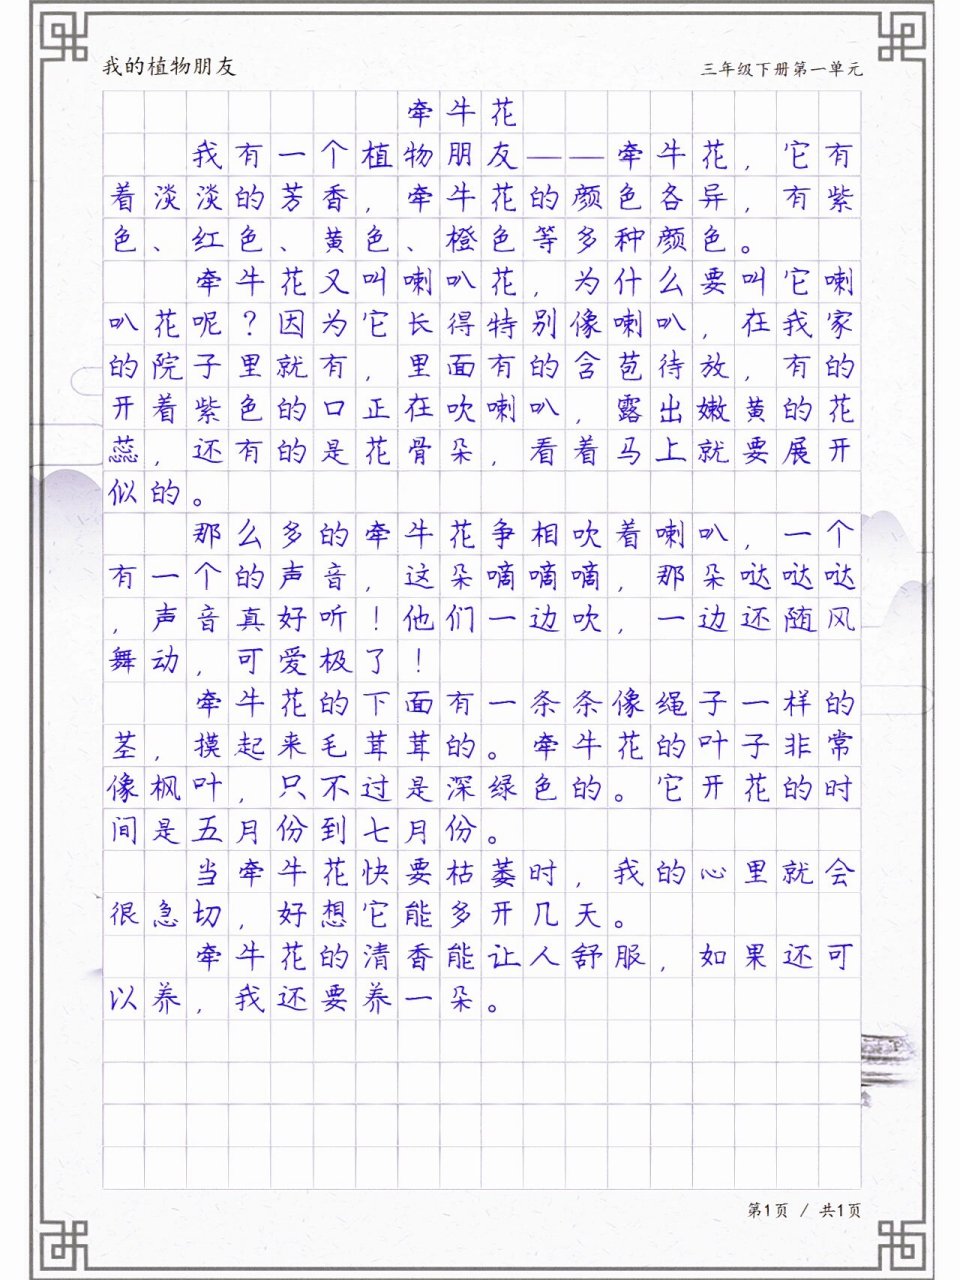 我的植物朋友
三年级下册第一单元
牵牛花
我有一个植物朋友——牵牛花，它有
着淡淡的芳香，牵牛花的颜色各异，有紫
色、红色、黄色、橙色等多种颜色。
牵牛花又叫喇叭花，为什么要叫它喇
叭花呢？因为它长得特别像喇叭，在我家
的院子里就有，里面有的含苞待放，有的
开着紫色的口正在吹喇叭，露出嫩黄的花
蕊，还有的是花骨朵，看着马上就要展开
似的。
那么多的牵牛花争相吹着喇叭，一个
有一个的声音，这朵嘀嘀嘀，那朵哒哒哒
，声音真好听！他们一边吹，一边还随风
舞动，可爱极了！
牵牛花的下面有一条条像绳子一样的
茎，摸起来毛茸茸的。牵牛花的叶子非常
像枫叶，只不过是深绿色的。它开花的时
间是五月份到七月份。
当牵牛花快要枯萎时，我的心里就会
很急切，好想它能多开几天。
牵牛花的清香能让人舒服，如果还可
以养，我还要养一朵。
第1页 / 共1页